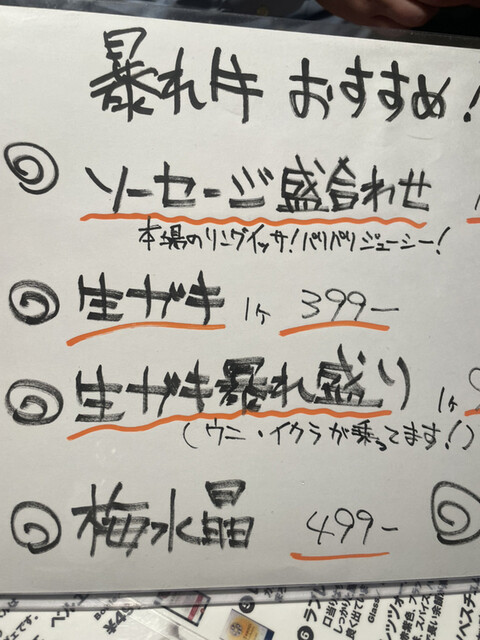 暴れ牛 おすすめ!
ソーセージ盛合わせ
本場のリングイッサ!パリパリジューシー!
生ガキ 1ヶ 399-
生ガキ暴れ盛り 1ヶ
(ウニ・イクラが乗ってます!)
梅水晶 499-